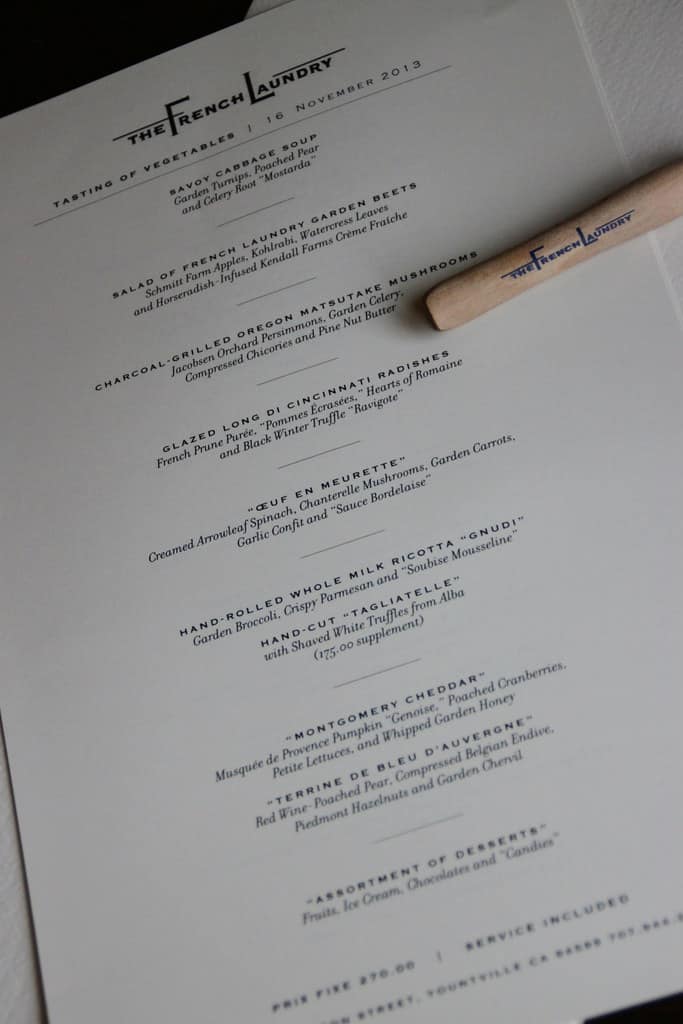 THE FRENCH LAUNDRY
TASTING OF VEGETABLES | 16 NOVEMBER 2013
SAVOY CABBAGE SOUP
Garden Turnips, Poached Pear
and Celery Root "Mostarda"
SALAD OF FRENCH LAUNDRY GARDEN BEETS
Schmitt Farm Apples, Kohlrabi, Watercress Leaves
and Horseradish-Infused Kendall Farms Crème Fraîche
THE FRENCH LAUNDRY
CHARCOAL-GRILLED OREGON MATSUTAKE MUSHROOMS
Jacobsen Orchard Persimmons, Garden Celery,
Compressed Chicories and Pine Nut Butter
GLAZED LONG DI CINCINNATI RADISHES
French Prune Purée, "Pommes Écrasées," Hearts of Romaine
and Black Winter Truffle "Ravigote"
"ŒUF EN MEURETTE"
Creamed Arrowleaf Spinach, Chanterelle Mushrooms, Garden Carrots,
Garlic Confit and "Sauce Bordelaise"
HAND-ROLLED WHOLE MILK RICOTTA "GNUDI"
Garden Broccoli, Crispy Parmesan and "Soubise Mousseline"
HAND-CUT "TAGLIATELLE"
with Shaved White Truffles from Alba
(175.00 supplement)
"MONTGOMERY CHEDDAR"
Musquée de Provence Pumpkin "Genoise," Poached Cranberries,
Petite Lettuces, and Whipped Garden Honey
"TERRINE DE BLEU D'AUVERGNE"
Red Wine-Poached Pear, Compressed Belgian Endive,
Piedmont Hazelnuts and Garden Chervil
"ASSORTMENT OF DESSERTS"
Fruits, Ice Cream, Chocolates and "Candies"
PRIX FIXE 270.00 | SERVICE INCLUDED
STREET, YOUNTVILLE CA 94599 707.944.